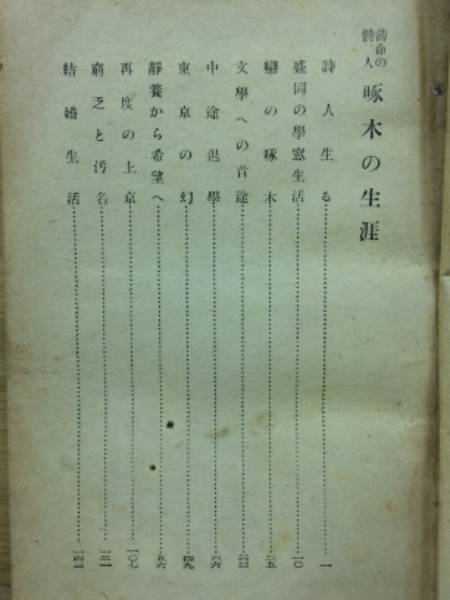 薄命の詩人 啄木の生涯
詩人生る 一
盛岡の學窓生活 一〇
戀の啄木 二五
文學への首途 三三
中途退學 三六
東京の幻 四九
靜養から希望へ 五六
再度の上京 一〇七
窮乏と汚名 一二一
結婚生活 一四一